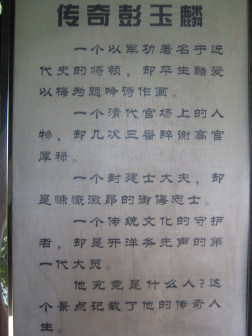 传奇彭玉麟
一个以军功著名于近
代史的将领，却平生酷爱
以梅为题吟诗作画。
一个清代官场上的人
物，却几次三番辞谢高官
厚禄。
一个封建士大夫，却
是慷慨激昂的御侮志士。
一个传统文化的守护
者，却是开洋务先声的第
一代大员。
他究竟是什么人？这
个景点记载了他的传奇人
生。